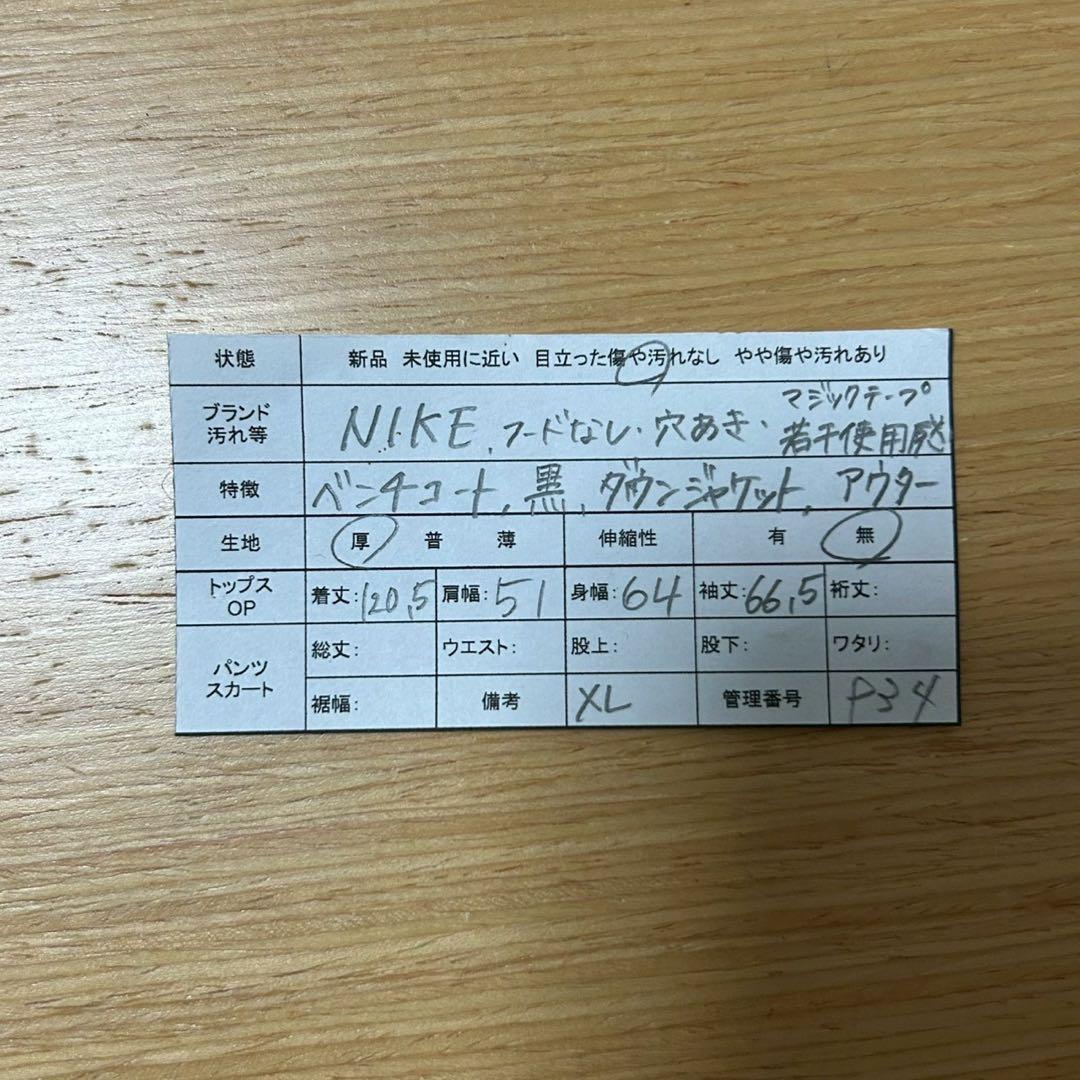 状態 新品 未使用に近い 目立った傷や汚れなし やや傷や汚れあり
ブランド 汚れ等 NIKE、フードなし・穴あき・マジックテープ若干使用感
特徴 ベンチコート、黒、ダウンジャケット、アウター
生地 厚 普 薄 伸縮性 有 無
トップス OP 着丈:120,5 肩幅:51 身幅:64 袖丈:66,5 裄丈:
パンツ スカート 総丈: ウエスト: 股上: 股下: ワタリ:
裾幅: 備考 XL 管理番号 P34